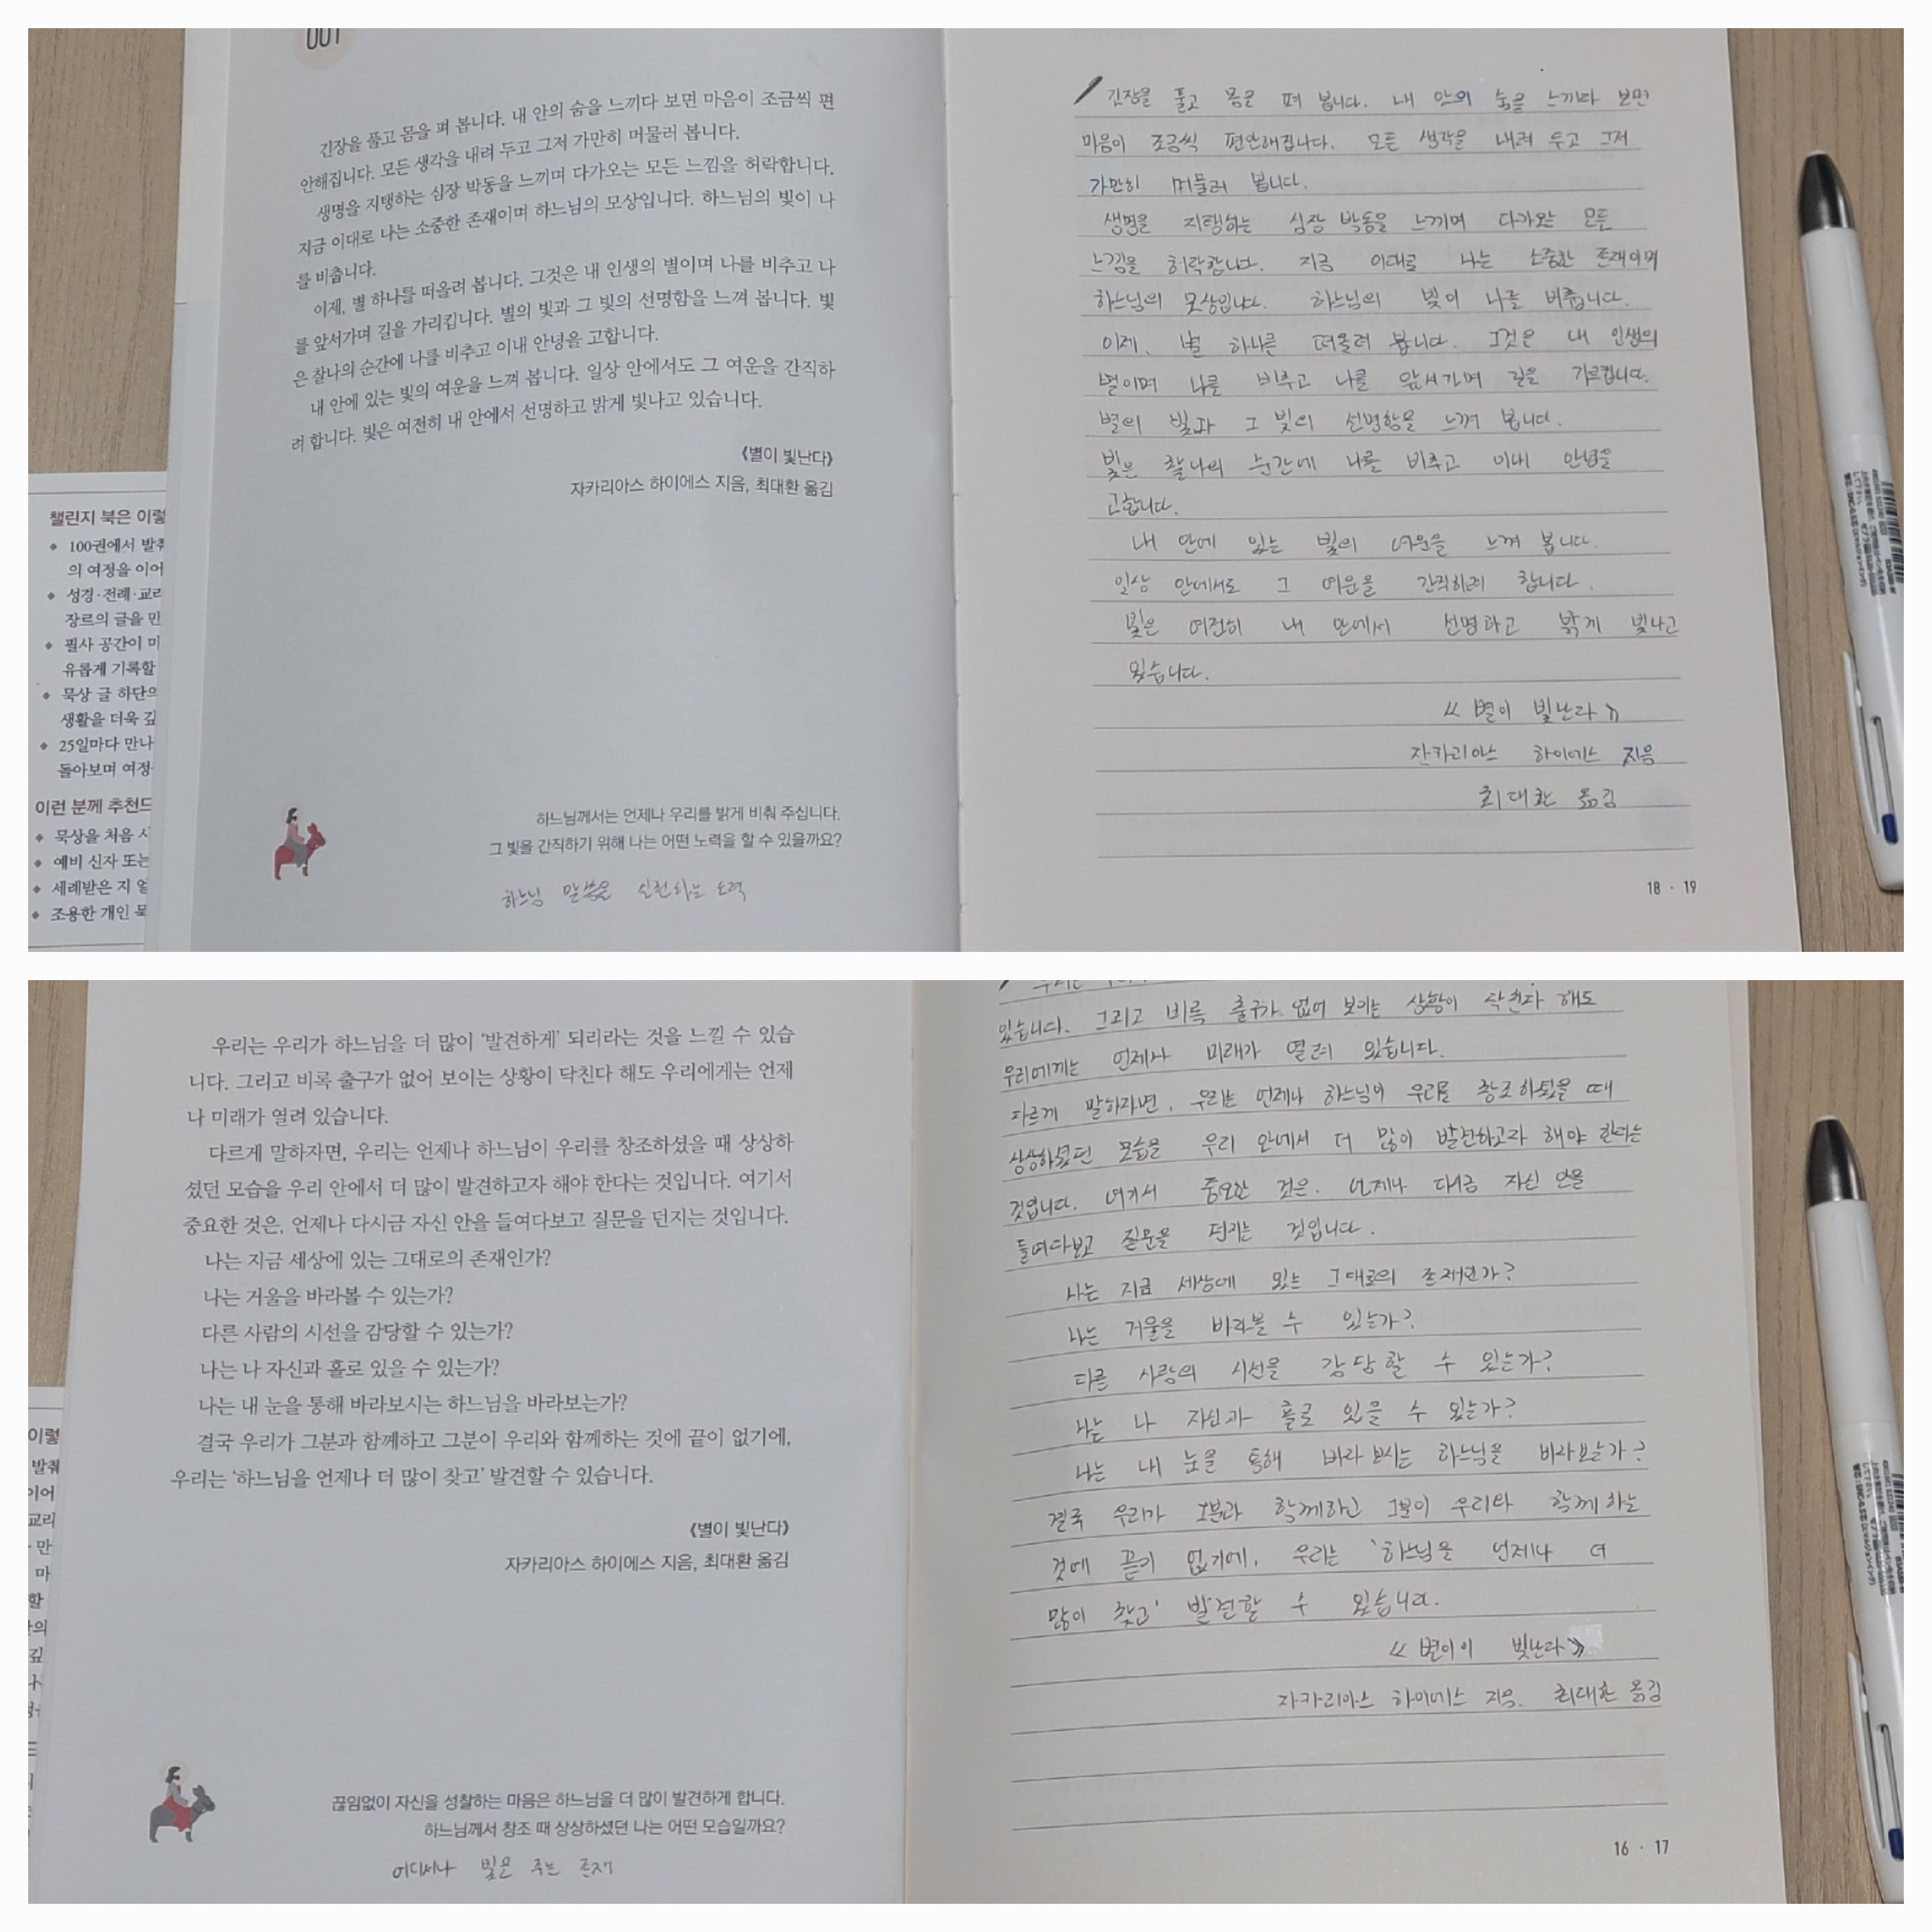 001
긴장을 풀고 몸을 펴 봅니다. 내 안의 숨을 느끼다 보면 마음이 조금씩 편
안해집니다. 모든 생각을 내려 두고 그저 가만히 머물러 봅니다.
생명을 지탱하는 심장 박동을 느끼며 다가오는 모든 느낌을 허락합니다.
지금 이대로 나는 소중한 존재이며 하느님의 모상입니다. 하느님의 빛이 나
를 비춥니다.
이제, 별 하나를 떠올려 봅니다. 그것은 내 인생의 별이며 나를 비추고 나
를 앞서가며 길을 가리킵니다. 별의 빛과 그 빛의 선명함을 느껴 봅니다. 빛
은 찰나의 순간에 나를 비추고 이내 안녕을 고합니다.
내 안에 있는 빛의 여운을 느껴 봅니다. 일상 안에서도 그 여운을 간직하
려 합니다. 빛은 여전히 내 안에서 선명하고 밝게 빛나고 있습니다.
《별이 빛난다》
자카리아스 하이에스 지음, 최대환 옮김
챌린지 북은 이렇
100권에서 발췌
의 여정을 이어
성경·전례·교리
장르의 글을 만
필사 공간이 마
유롭게 기록할
묵상 글 하단의
생활을 더욱 깊
25일마다 만나
돌아보며 여정
이런 분께 추천드
묵상을 처음 시
예비 신자 또는
세례받은 지 얼
조용한 개인 묵
하느님께서는 언제나 우리를 밝게 비춰 주십니다.
그 빛을 간직하기 위해 나는 어떤 노력을 할 수 있을까요?
하느님 말씀을 실천하는 노력
긴장을 풀고 몸을 펴 봅니다. 내 안의 숨을 느끼다 보면
마음이 조금씩 편안해집니다. 모든 생각을 내려 두고 그저
가만히 머물러 봅니다.
생명을 지탱하는 심장 박동을 느끼며 다가오는 모든
느낌을 허락합니다. 지금 이대로 나는 소중한 존재이며
하느님의 모상입니다. 하느님의 빛이 나를 비춥니다.
이제, 별 하나를 떠올려 봅니다. 그것은 내 인생의
별이며 나를 비추고 나를 앞서가며 길을 가르킵니다.
별의 빛과 그 빛의 선명함을 느껴 봅니다.
빛은 찰나의 순간에 나를 비추고 이내 안녕을
고합니다.
내 안에 있는 빛의 여운을 느껴 봅니다.
일상 안에서도 그 여운을 간직하려 합니다.
빛은 여전히 내 안에서 선명하고 밝게 빛나고
있습니다.
《별이 빛난다》
자카리아스 하이에스 지음
최대환 옮김
18 · 19
우리는 우리가 하느님을 더 많이 '발견하게' 되리라는 것을 느낄 수 있습
니다. 그리고 비록 출구가 없어 보이는 상황이 닥친다 해도 우리에게는 언제
나 미래가 열려 있습니다.
다르게 말하자면, 우리는 언제나 하느님이 우리를 창조하셨을 때 상상하
셨던 모습을 우리 안에서 더 많이 발견하고자 해야 한다는 것입니다. 여기서
중요한 것은, 언제나 다시금 자신 안을 들여다보고 질문을 던지는 것입니다.
나는 지금 세상에 있는 그대로의 존재인가?
나는 거울을 바라볼 수 있는가?
다른 사람의 시선을 감당할 수 있는가?
나는 나 자신과 홀로 있을 수 있는가?
나는 내 눈을 통해 바라보시는 하느님을 바라보는가?
결국 우리가 그분과 함께하고 그분이 우리와 함께하는 것에 끝이 없기에,
우리는 '하느님을 언제나 더 많이 찾고' 발견할 수 있습니다.
《별이 빛난다》
자카리아스 하이에스 지음, 최대환 옮김
이렇
발췌
이어
교리
만
마
할
의
깊
끊임없이 자신을 성찰하는 마음은 하느님을 더 많이 발견하게 합니다.
하느님께서 창조 때 상상하셨던 나는 어떤 모습일까요?
어디서나 빛을 주는 존재
있습니다. 그리고 비록 출구가 없어 보이는 상황이 닥친다 해도
우리에게는 언제나 미래가 열려 있습니다.
다르게 말하자면, 우리는 언제나 하느님이 우리를 창조하셨을 때
상상하셨던 모습을 우리 안에서 더 많이 발견하고자 해야 한다는
것입니다. 여기서 중요한 것은, 언제나 다시금 자신 안을
들여다보고 질문을 던지는 것입니다.
나는 지금 세상에 있는 그대로의 존재인가?
나는 거울을 바라볼 수 있는가?
다른 사람의 시선을 감당할 수 있는가?
나는 나 자신과 홀로 있을 수 있는가?
나는 내 눈을 통해 바라보시는 하느님을 바라보는가?
결국 우리가 그분과 함께하고 그분이 우리와 함께하는
것에 끝이 없기에, 우리는 '하느님을 언제나 더
많이 찾고' 발견할 수 있습니다.
《별이이 빛난다》
자카리아스 하이에스 지음. 최대환 옮김
16 · 17